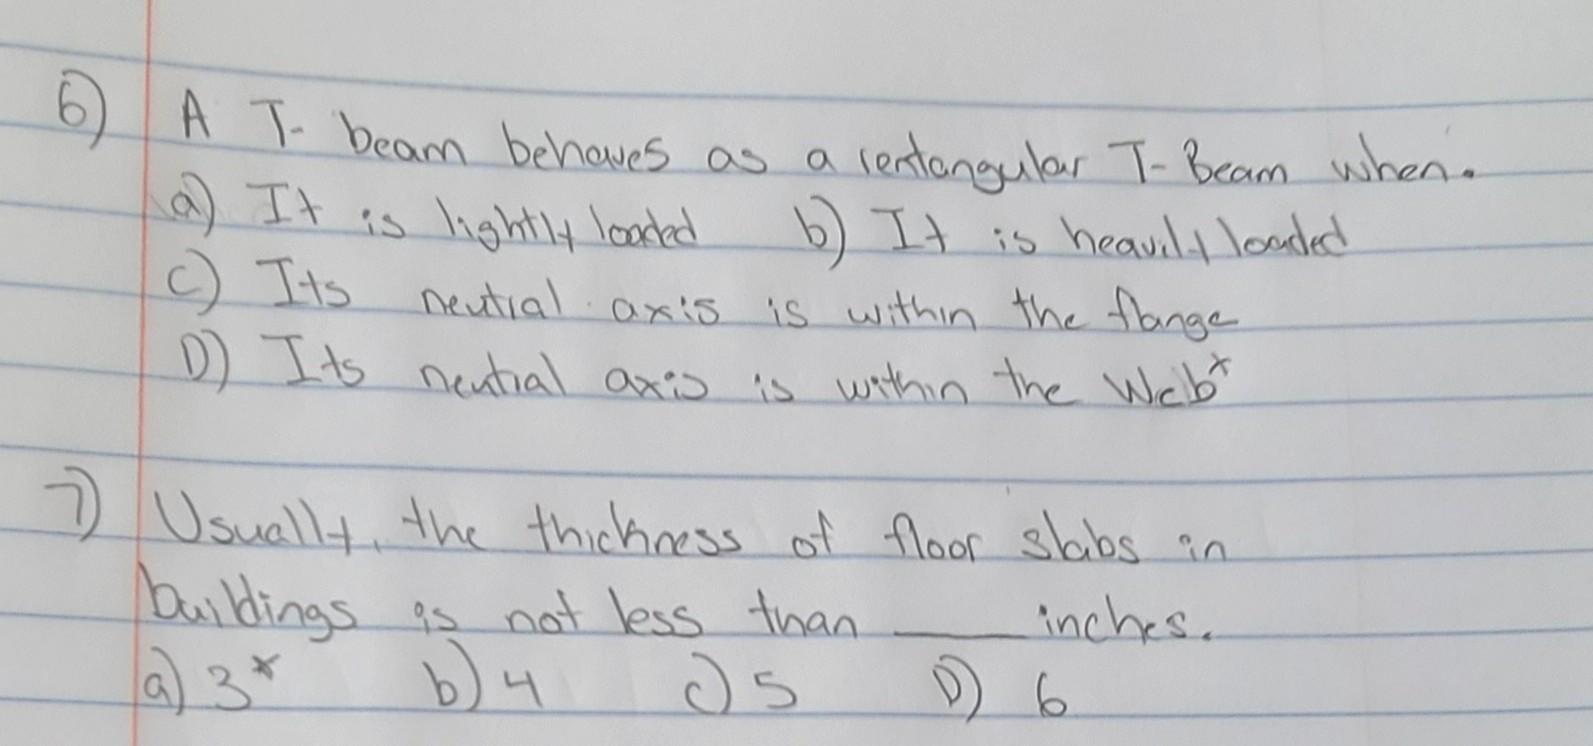 6) A T- beam behaves as a rentangular T- Beam when.
a) It is lightly loaded b) It is heavily loaded
c) Its neutral axis is within the flange
D) Its neutral axis is within the Web*
7) Usually, the thickness of floor slabs in
buildings is not less than ____ inches.
a) 3* b) 4 c) 5 D) 6